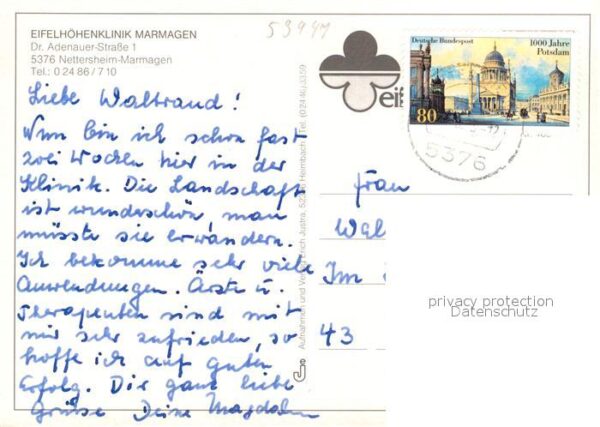 53947
EIFELHÖHENKLINIK MARMAGEN
Dr. Adenauer-Straße 1
5376 Nettersheim-Marmagen
Tel.: 0 24 86 / 7 10
Liebe Waltraud!
Nun bin ich schon fast
zwei Wochen hier in der
Klinik. Die Landschaft
ist wunderschön, man
müsste sie erwandern.
Ich bekomme sehr viele
Anwendungen. Ärzte u.
Therapeuten sind mit
mir sehr zufrieden, so
hoffe ich auf guten
Erfolg. Dir ganz liebe
Grüsse Deine Magdalen
Aufnahmen und Verlag Erich Justra
ei
Deutsche Bundespost
1000 Jahre
Potsdam
80
5376
Frau
Wal
Im
43
privacy protection
Datenschutz